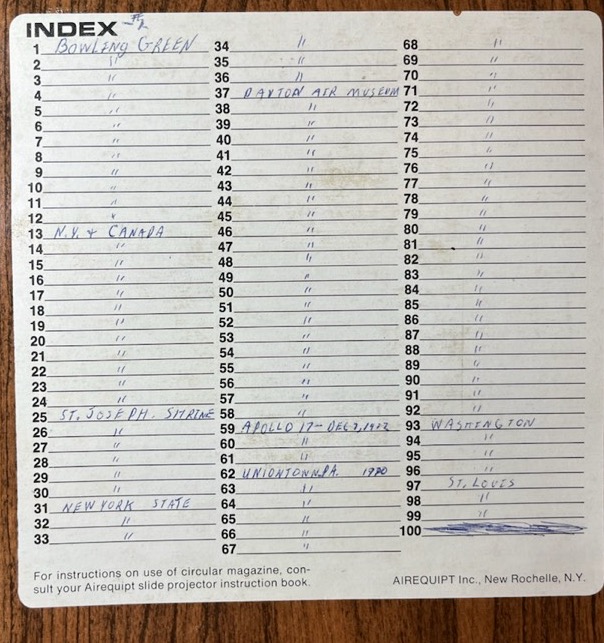 INDEX
1 BOWLING GREEN
2 "
3 "
4 "
5 "
6 "
7 "
8 "
9 "
10 "
11 "
12 "
13 N.Y. + CANADA
14 "
15 "
16 "
17 "
18 "
19 "
20 "
21 "
22 "
23 "
24 "
25 ST. JOSEPH. SHRINE
26 "
27 "
28 "
29 "
30 "
31 NEW YORK STATE
32 "
33 "
34 "
35 "
36 "
37 DAYTON AIR MUSEUM
38 "
39 "
40 "
41 "
42 "
43 "
44 "
45 "
46 "
47 "
48 "
49 "
50 "
51 "
52 "
53 "
54 "
55 "
56 "
57 "
58 "
59 APOLLO 17 - DEC 7, 1972
60 "
61 "
62 UNIONTOWN, PA. 1970
63 "
64 "
65 "
66 "
67 "
68 "
69 "
70 "
71 "
72 "
73 "
74 "
75 "
76 "
77 "
78 "
79 "
80 "
81 "
82 "
83 "
84 "
85 "
86 "
87 "
88 "
89 "
90 "
91 "
92 "
93 WASHINGTON
94 "
95 "
96 "
97 ST. LOUIS
98 "
99 "
100
For instructions on use of circular magazine, con-
sult your Airequipt slide projector instruction book.
AIREQUIPT Inc., New Rochelle, N.Y.